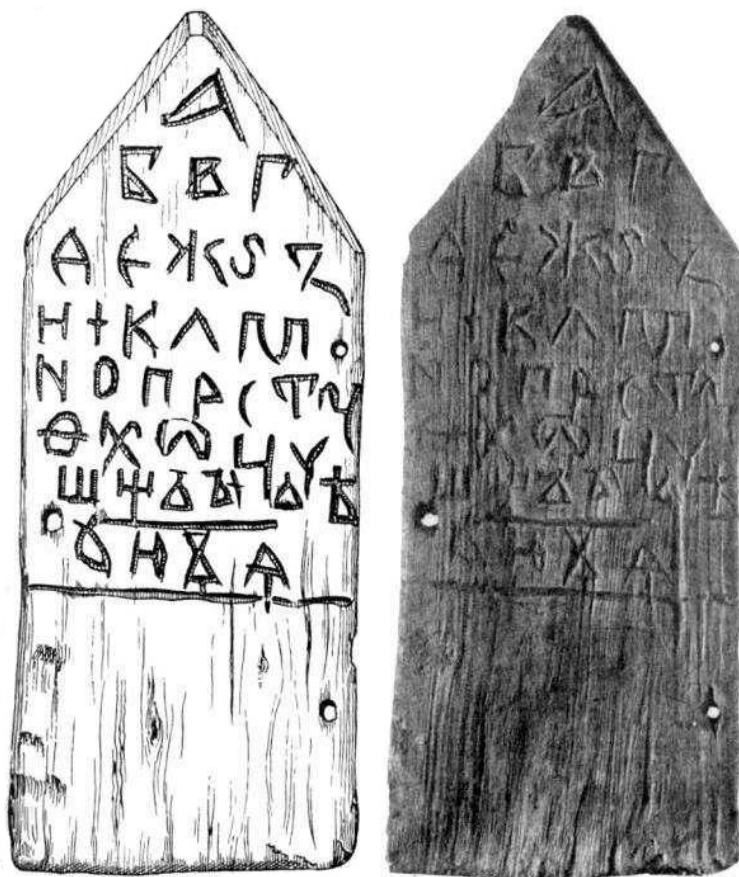 А
Б В Г
Д Є Ж Ѕ З
И І К Л М
N О П Р С Т Ч
Ѳ Х Ѡ Ц Ч
Ш Щ Ъ Ы Ь Ѣ
Ꙋ Ю Ѫ Ѧ